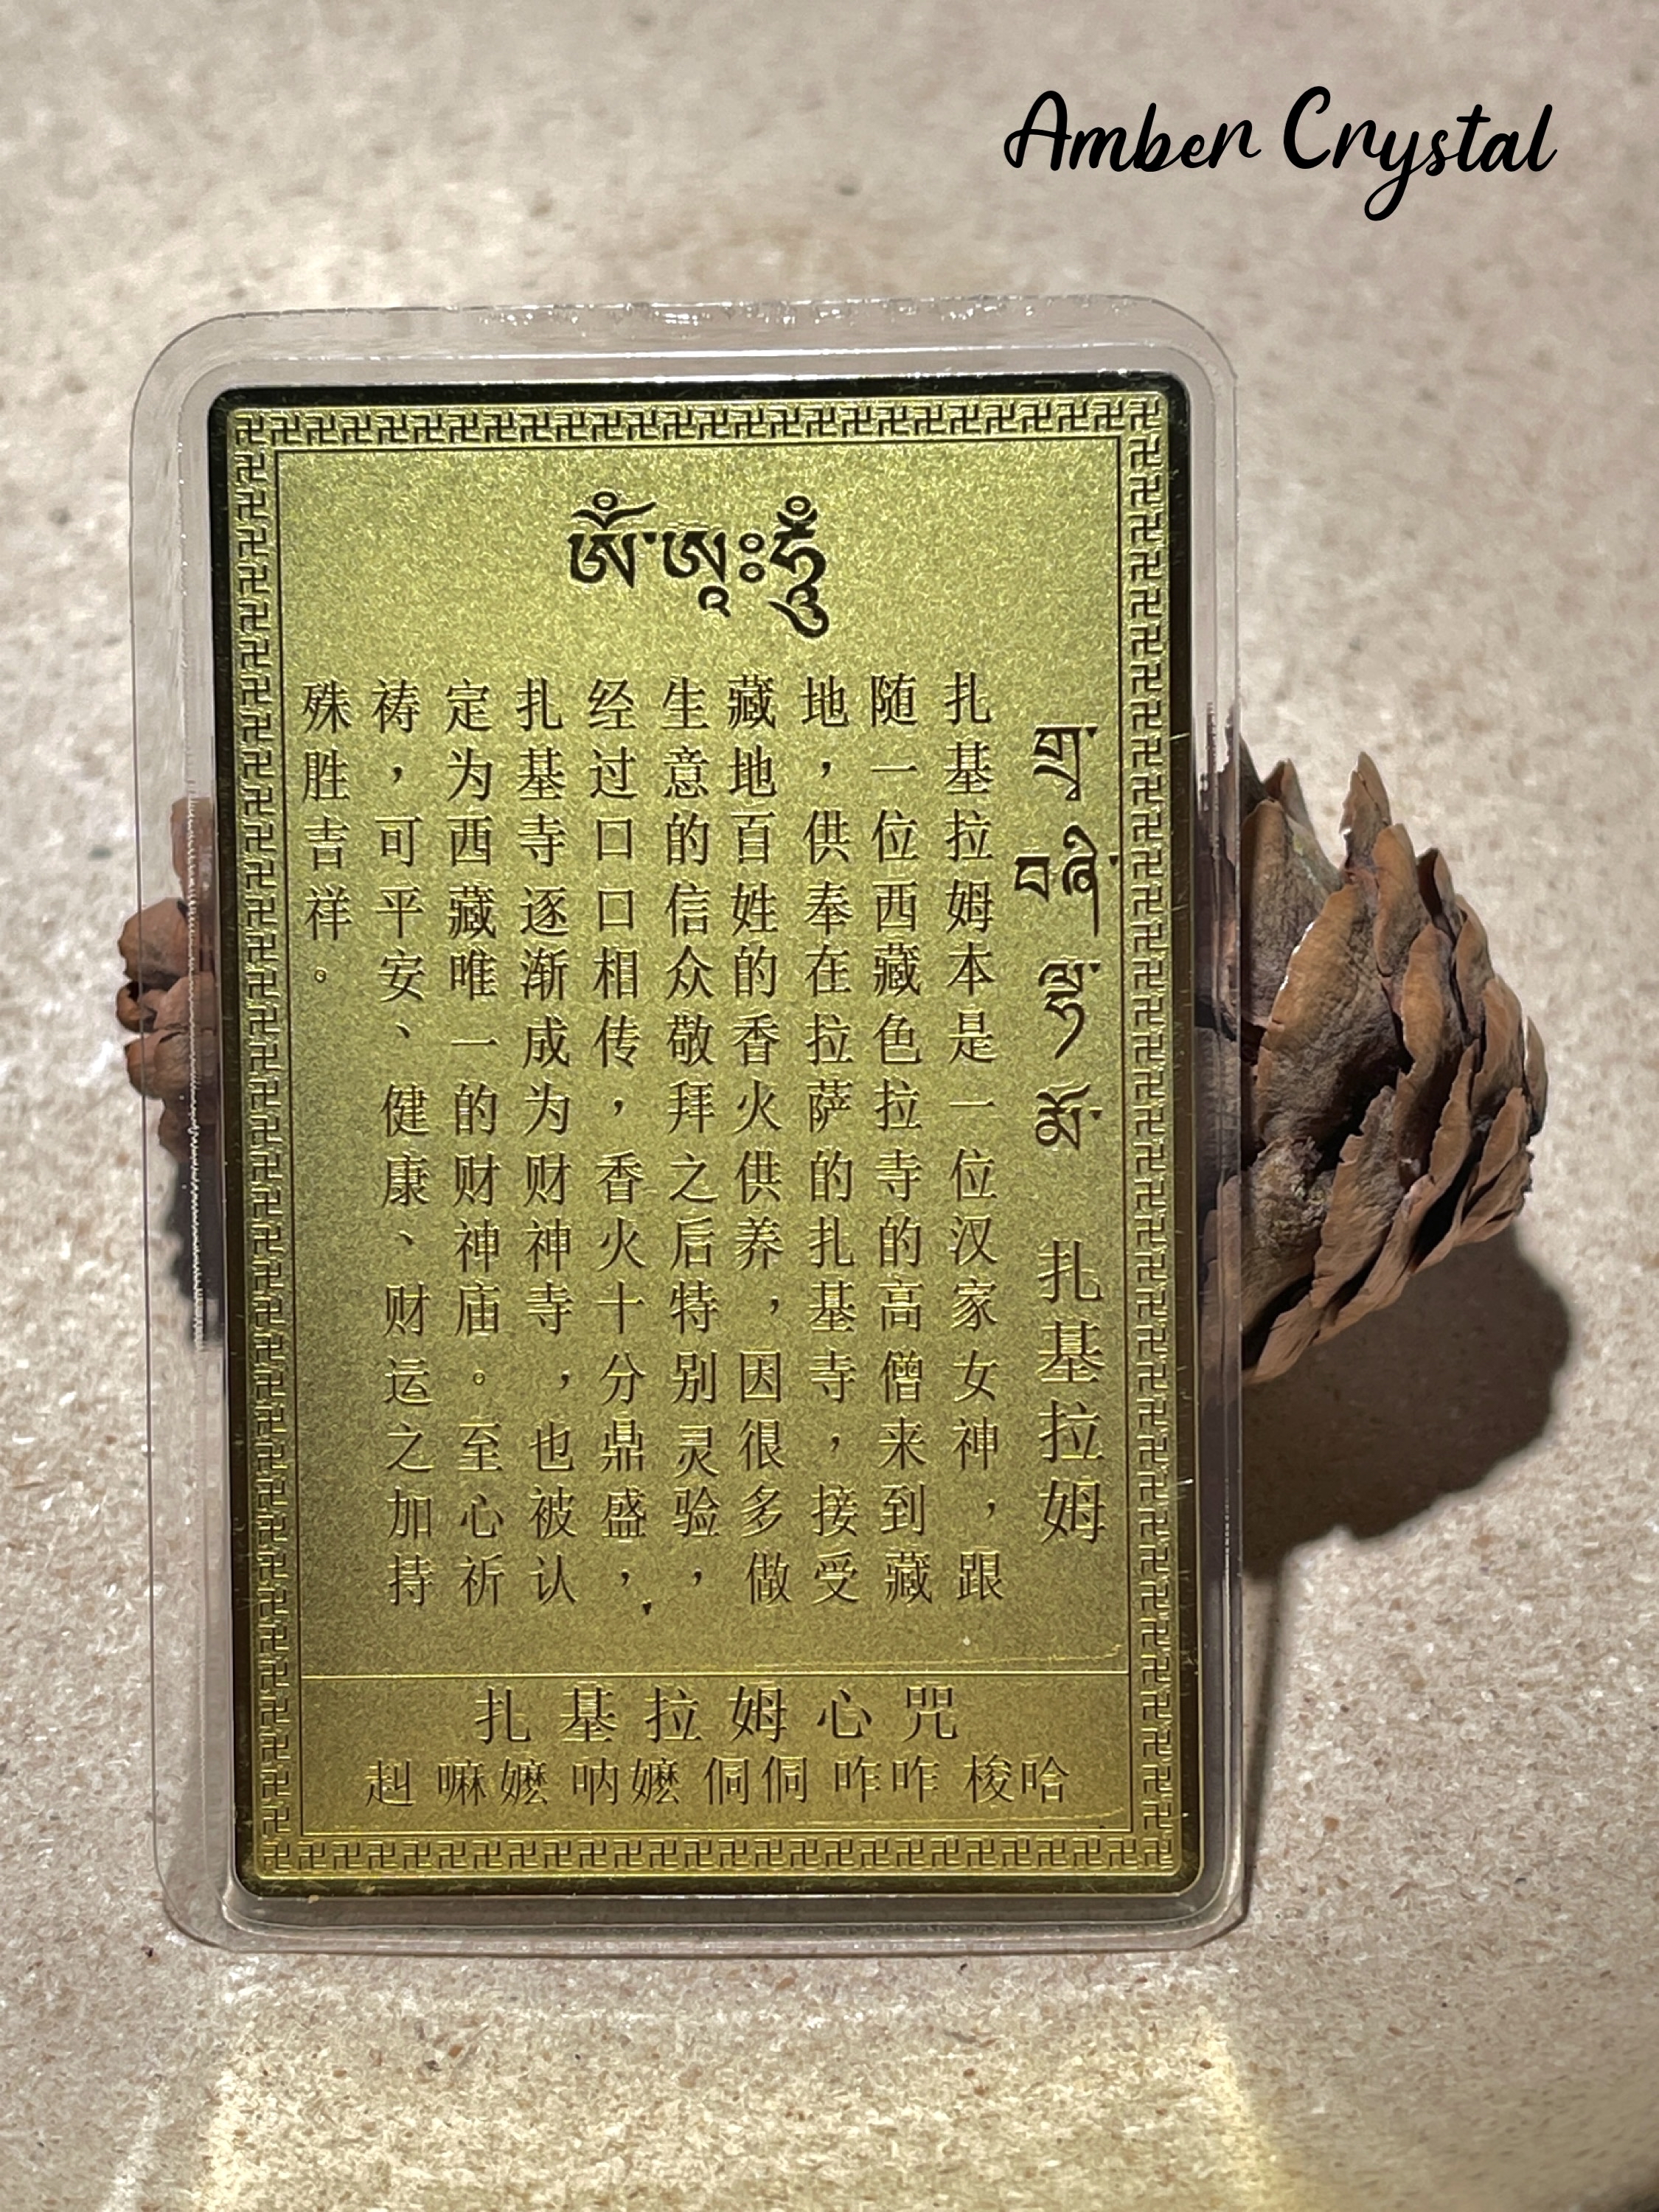 Amber Crystal
ༀ་ཨཱཿཧཱུྃ
གྲ་བཞི་ལྷ་མོ་ 扎基拉姆
扎基拉姆本是一位汉家女神，跟
随一位西藏色拉寺的高僧来到藏
地，供奉在拉萨的扎基寺，接受
藏地百姓的香火供养，因很多做
生意的信众敬拜之后特别灵验，
经过口口相传，香火十分鼎盛，
扎基寺逐渐成为财神寺，也被认
定为西藏唯一的财神庙。至心祈
祷，可平安、健康、财运之加持
殊胜吉祥。
扎基拉姆心咒
赳 嘛嬷 呐嬷 侗侗 咋咋 梭哈